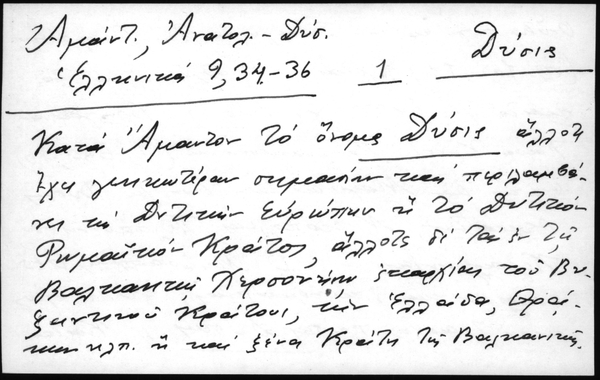 Ἀμάντ., Ἀνατολ. – Δύσ.
Δύσις
Ἑλληνικά 9, 34–36
1
Κατά Ἄμαντον τό ὄνομα Δύσις ἄλλοτ
ἔχει γενικωτέραν σημασίαν καί περιλαμβά-
νει τήν Δυτικήν Εὐρώπην ἤ τό Δυτικόν
Ρωμαϊκόν Κράτος, ἄλλοτε δέ τάς ἐν τῇ
Βαλκανικῇ Χερσονήσῳ ἐπαρχίας τοῦ Βυ-
ζαντινοῦ Κράτους, τήν Ἑλλάδα, Θρᾴ-
κην κλπ. ἤ καί ξένα Κράτη τῆς Βαλκανικῆς.